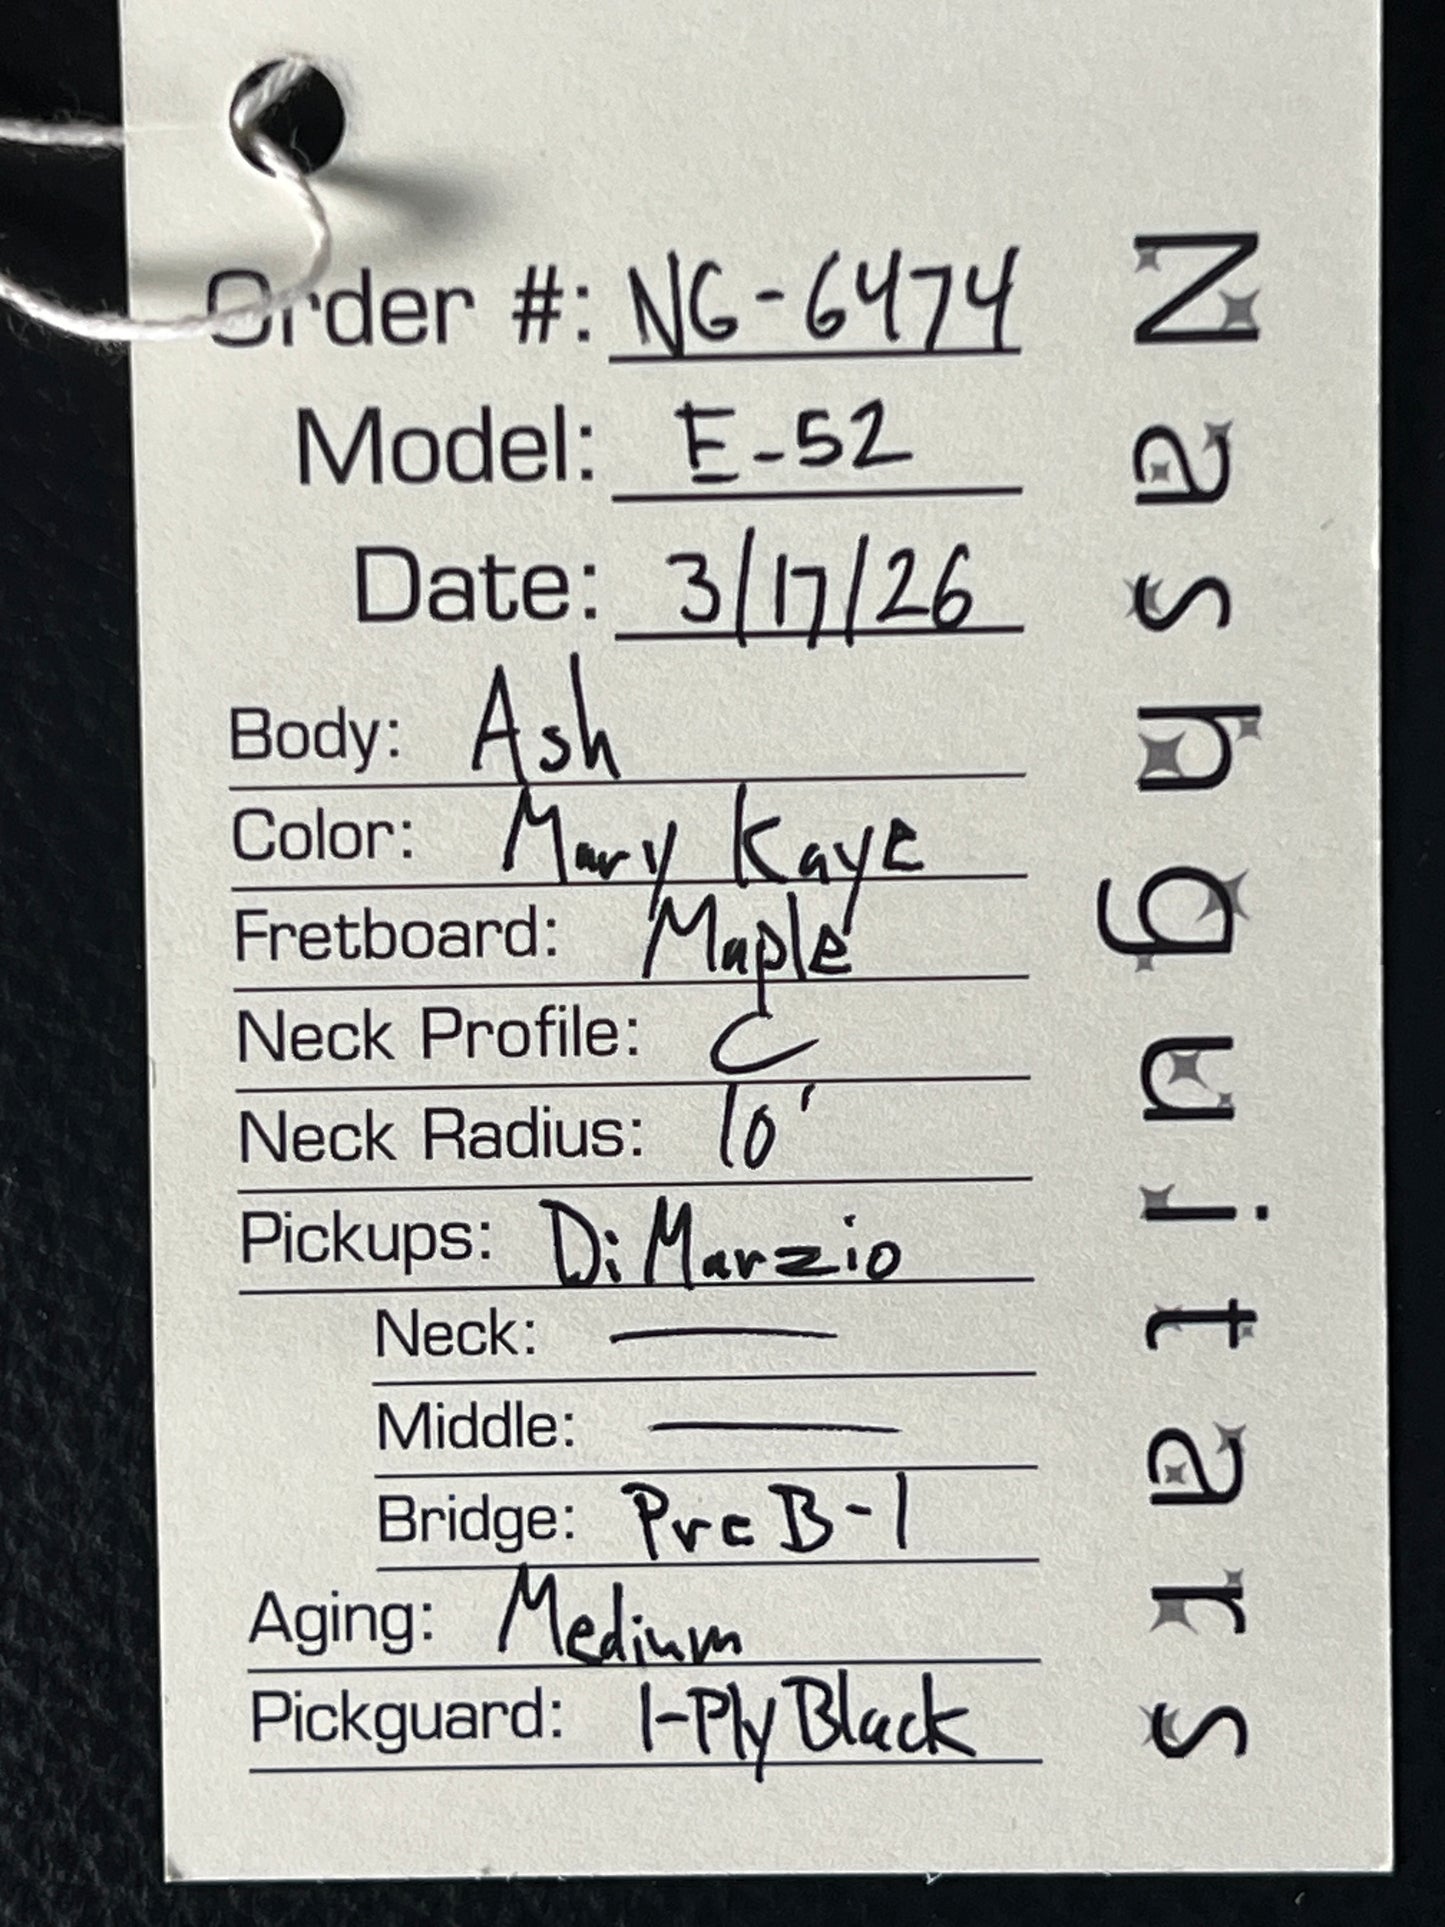 Order #: NG-6474
Model: E-52
Date: 3/17/26
Body: Ash
Color: Mary Kaye
Fretboard: Maple
Neck Profile: C
Neck Radius: 10'
Pickups: DiMarzio
Neck: —
Middle: —
Bridge: Pre B-1
Aging: Medium
Pickguard: 1-Ply Black
Nashguitars